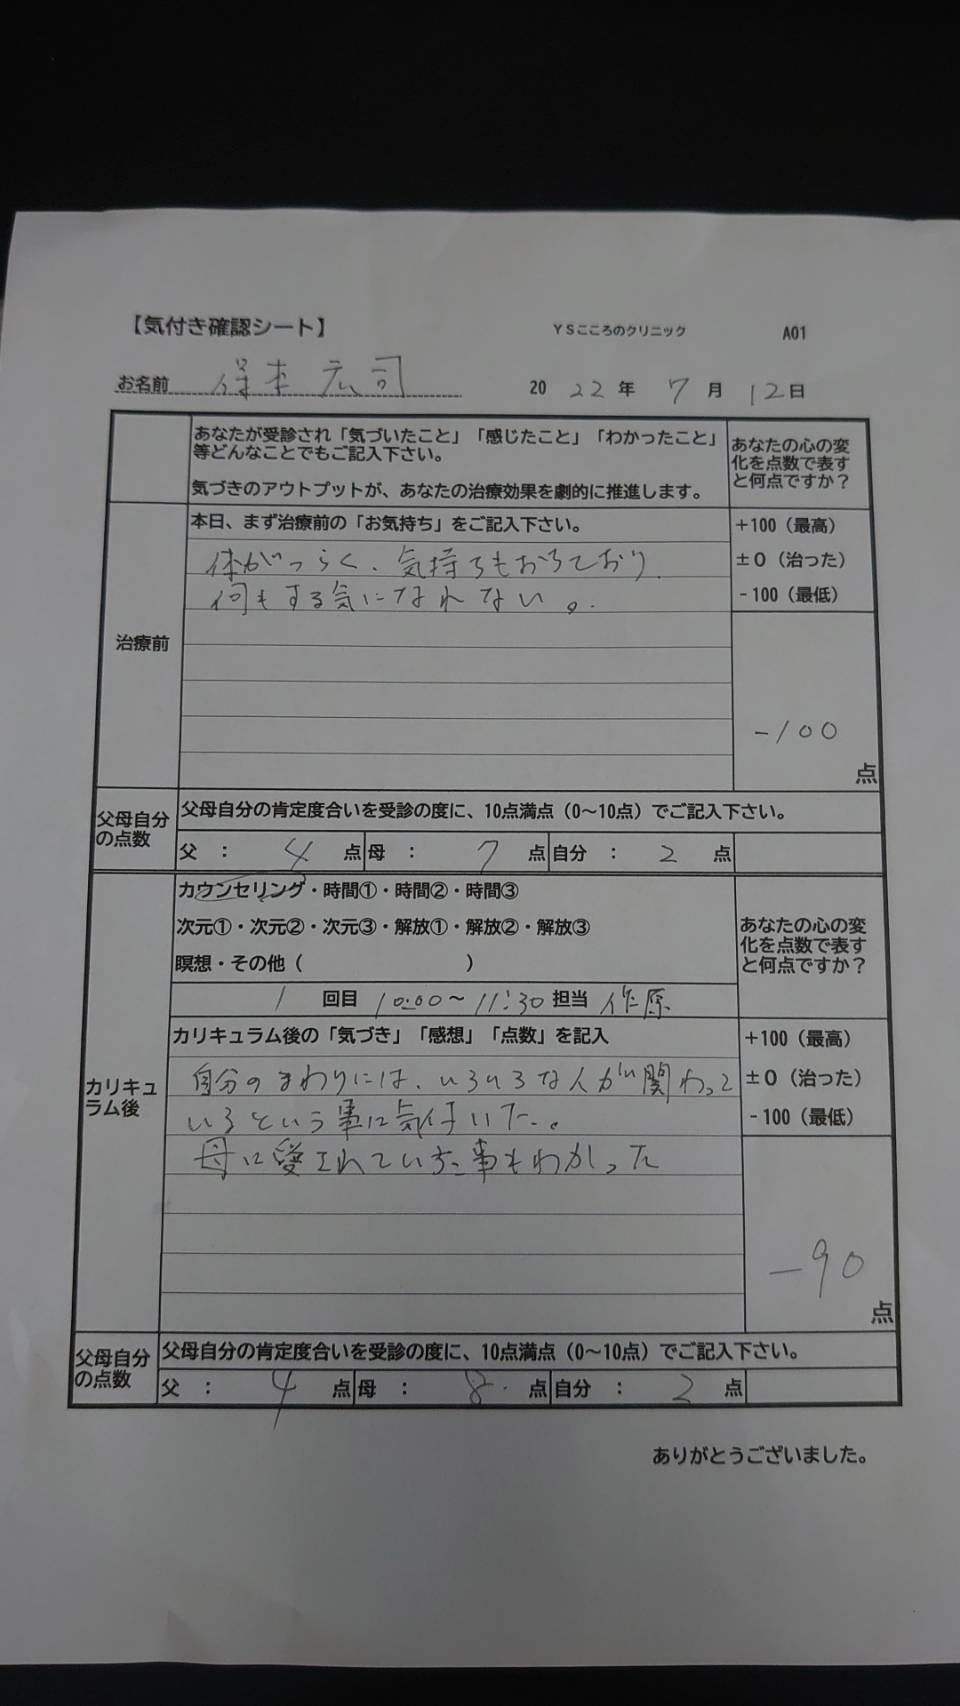 【気付き確認シート】 YSこころのクリニック A01
お名前 保本 広司 2022年 7月 12日
あなたが受診され「気づいたこと」「感じたこと」「わかったこと」
等どんなことでもご記入下さい。
気づきのアウトプットが、あなたの治療効果を劇的に推進します。
あなたの心の変
化を点数で表す
と何点ですか？
治療前
本日、まず治療前の「お気持ち」をご記入下さい。
体がつらく、気持ちもおちており、
何もする気になれない。
+100（最高）
±0（治った）
-100（最低）
-100
点
父母自分
の点数
父母自分の肯定度合いを受診の度に、10点満点（0〜10点）でご記入下さい。
父 ： 4 点 母 ： 7 点 自分 ： 2 点
カウンセリング・時間①・時間②・時間③
次元①・次元②・次元③・解放①・解放②・解放③
瞑想・その他（ ）
1 回目 10:00〜11:30 担当 作原
あなたの心の変
化を点数で表す
と何点ですか？
カリキュ
ラム後
カリキュラム後の「気づき」「感想」「点数」を記入
自分のまわりには、いろいろな人が関わって
いるという事に気付いた。
母に愛されていた事もわかった
+100（最高）
±0（治った）
-100（最低）
-90
点
父母自分
の点数
父母自分の肯定度合いを受診の度に、10点満点（0〜10点）でご記入下さい。
父 ： 4 点 母 ： 8 点 自分 ： 2 点
ありがとうございました。